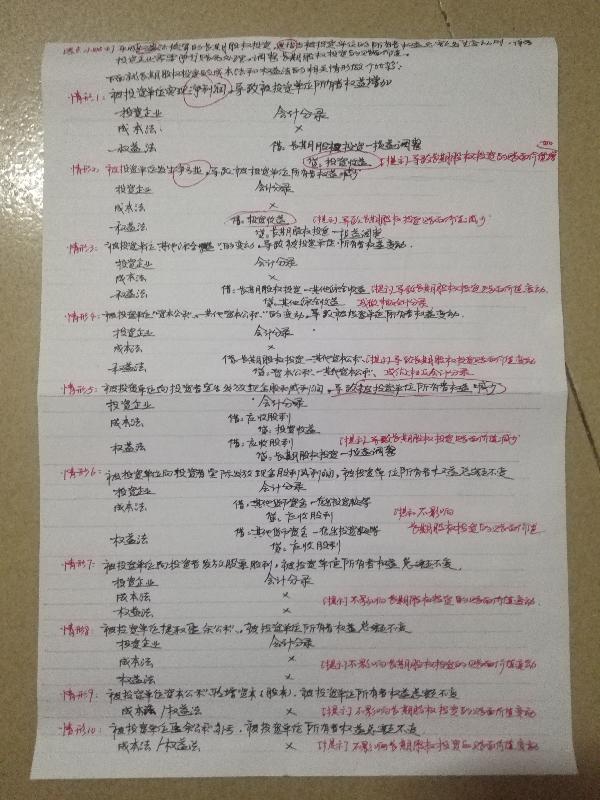 权益法核算的长期股权投资,
投资企业 长期股权投资的账面价值。
下面就长期股权投资的成本法和权益法的相关情形做个比较:
情形1: 被投资单位实现净利润,导致被投资单位所有者权益增加
投资企业 会计分录
成本法 ×
权益法 借:长期股权投资-损益调整
贷:投资收益 [提示]导致长期股权投资的账面价值增加
情形2: 被投资单位发生净亏损,导致被投资单位所有者权益减少
投资企业 会计分录
成本法 ×
权益法 借:投资收益 [提示]导致长期股权投资账面价值减少
贷:长期股权投资-损益调整
情形3: 被投资单位"其他综合收益"的变动,导致被投资单位所有者权益变动.
投资企业 会计分录
成本法 ×
权益法 借:长期股权投资-其他综合收益 [提示]导致长期股权投资账面价值变动.
贷:其他综合收益 或做相反会计分录
情形4: 被投资单位"资本公积-其他资本公积"的变动,导致被投资单位所有者权益变动.
投资企业 会计分录
成本法 ×
权益法 借:长期股权投资-其他资本公积 [提示]导致长期股权投资账面价值变动
贷:资本公积-其他资本公积 或做相反会计分录
情形5: 被投资单位向投资者宣告发放现金股利或利润,导致被投资单位所有者权益减少
投资企业 会计分录
成本法 借:应收股利
贷:投资收益
权益法 借:应收股利 [提示]导致长期股权投资账面价值减少
贷:长期股权投资-损益调整
情形6: 被投资单位向投资者实际发放现金股利或利润,被投资单位所有者权益总额不变
投资企业 会计分录
成本法 借:其他货币资金-存出投资款等
贷:应收股利 [提示]不影响
权益法 借:其他货币资金-存出投资款等 长期股权投资的账面价值
贷:应收股利
情形7: 被投资单位向投资者发放股票股利,被投资单位所有者权益总额不变.
投资企业 会计分录
成本法 ×
权益法 × [提示]不影响长期股权投资的账面价值变动.
情形8: 被投资单位提取盈余公积,被投资单位所有者权益总额不变
投资企业 会计分录
成本法 × [提示]不影响长期股权投资的账面价值变动
权益法 ×
情形9: 被投资单位资本公积转增资本(股本),被投资单位所有者权益总额不变
成本法/权益法 × [提示]不影响长期股权投资的账面价值变动
情形10: 被投资单位盈余公积补亏,被投资单位所有者权益总额不变
成本法/权益法 × [提示]不影响长期股权投资的账面价值变动